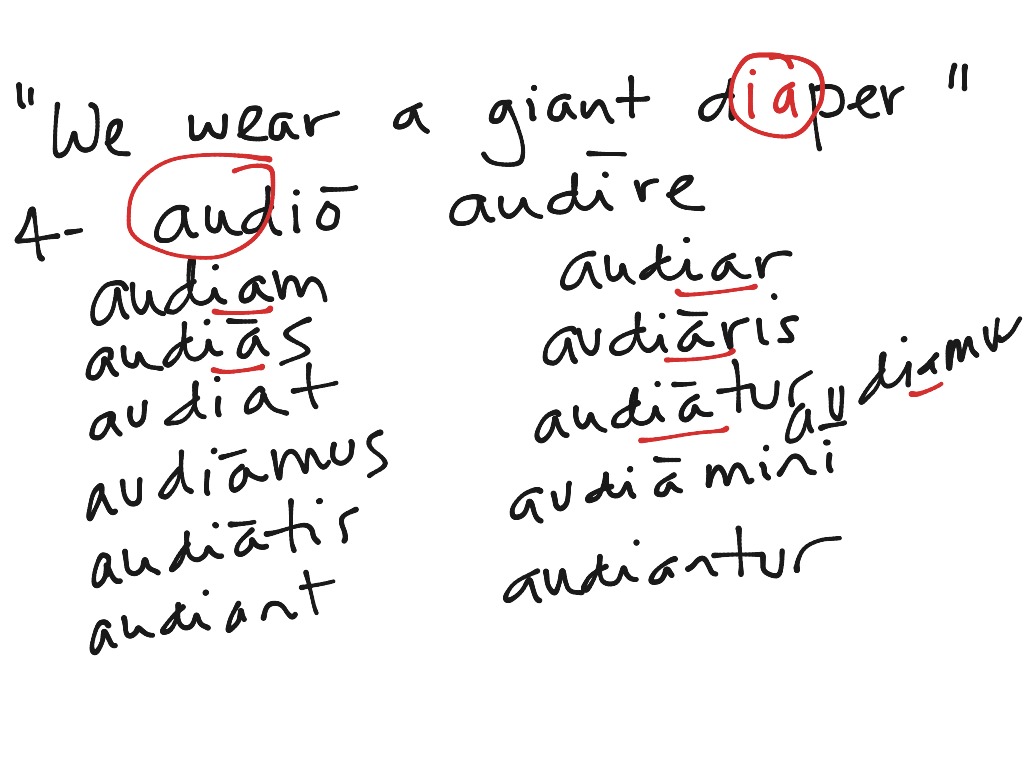 "We wear a giant diaper"
4- audiō audīre
audiam audiar
audiās audiāris
audiat audiātur audiamu
audiāmus audiāmini
audiātis audiantur
audiant